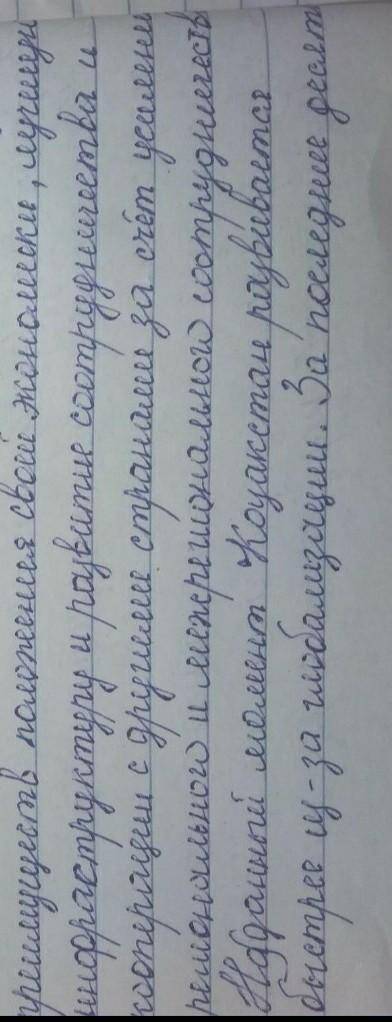 преимуществ положения свой экономики, лучшую
инфраструктуру и развитие сотрудничества и
кооперации с другими странами за счёт усилени
регионального и межрегионального сотрудничеств
На данный момент Казахстан развивается
быстрее из-за глобализации. За последние десят